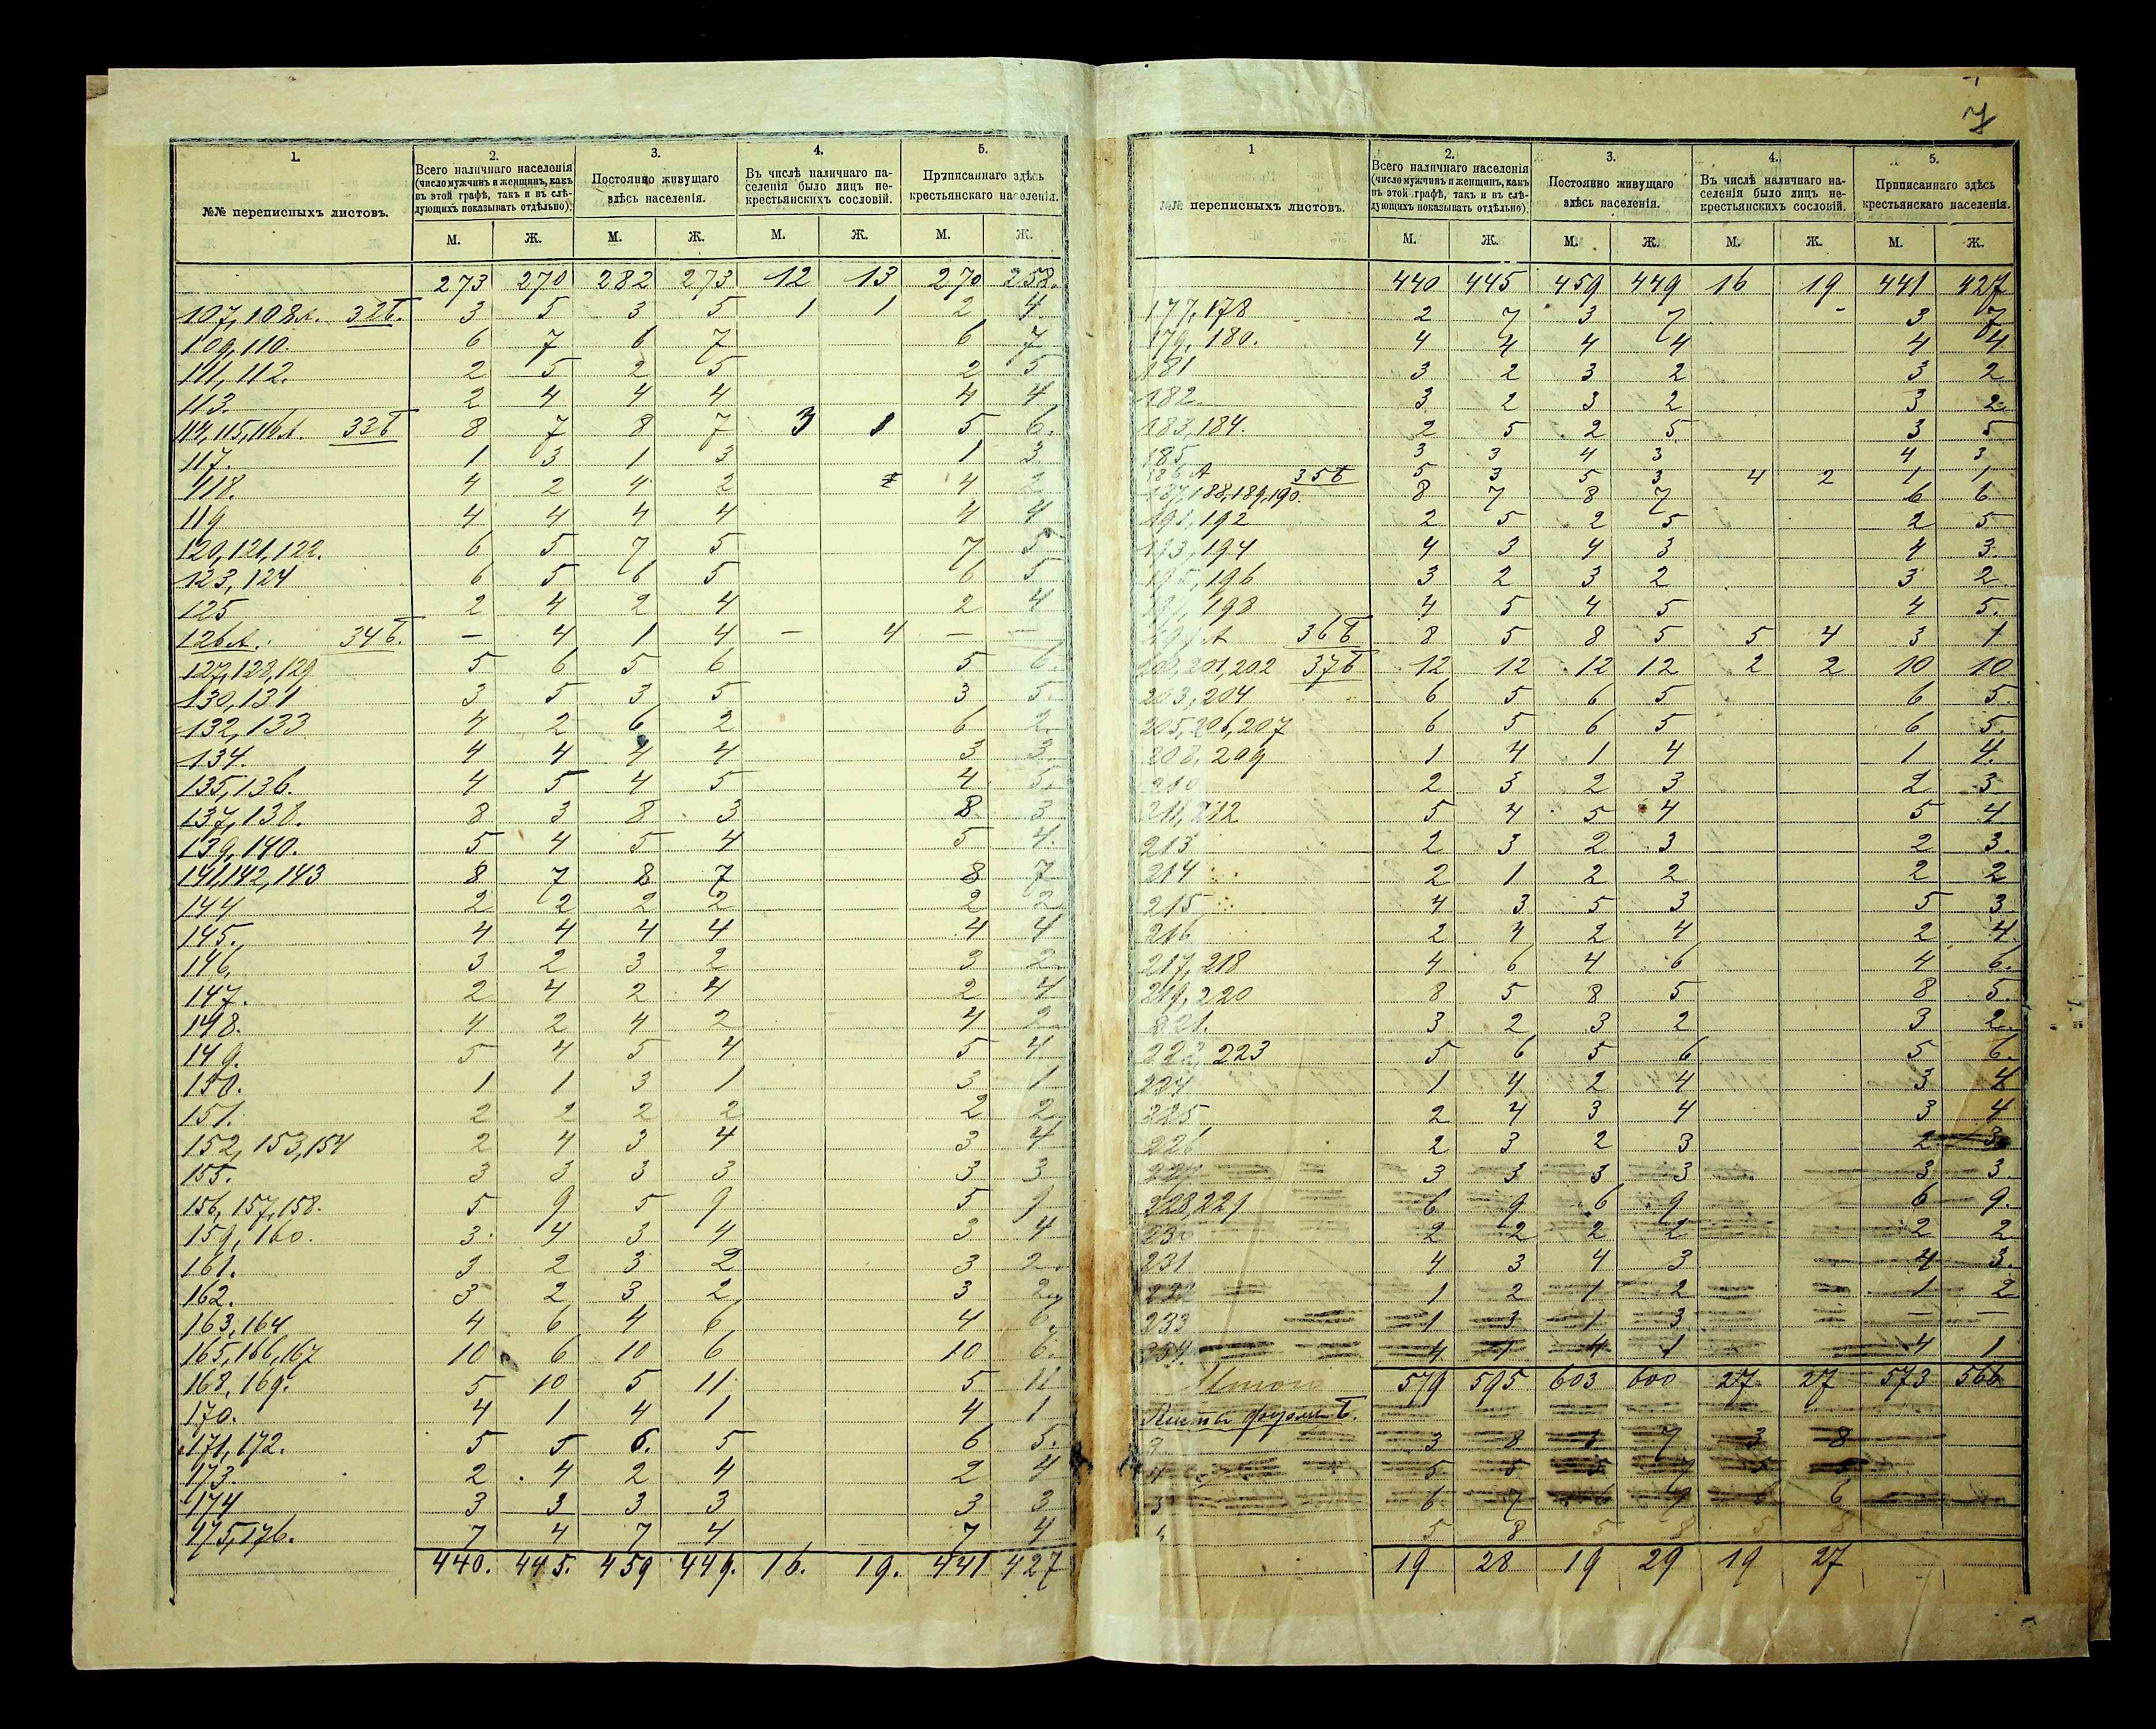 7
1.
2.
3.
4.
5.
№№ переписныхъ листовъ.
Всего наличнаго населенія
(число мужчинъ и женщинъ, какъ
въ этой графѣ, такъ и въ слѣ-
дующихъ показывать отдѣльно).
Постоянно живущаго
здѣсь населенія.
Въ числѣ наличнаго на-
селенія было лицъ не-
крестьянскихъ сословій.
Приписаннаго здѣсь
крестьянскаго населенія.
М. Ж. М. Ж. М. Ж. М. Ж.
273 270 282 273 12 13 270 258.
107, 108А. 32Б. 3 5 3 5 1 1 2 4
109, 110. 6 7 6 7 6 7
111, 112. 2 5 2 5 2 5
113. 2 4 4 4 4 4
114, 115, 116А. 33Б 8 7 8 7 3 1 5 6.
117. 1 3 1 3 1 3
118. 4 2 4 2 4 2
119 4 4 4 4 4 4
120, 121, 122. 6 5 7 5 7 5
123, 124 6 5 6 5 6 5
125 2 4 2 4 2 4
126А. 34Б. — 4 1 4 — 4 — —
127, 128, 129 5 6 5 6 5 6.
130, 131 3 5 3 5 3 5.
132, 133 4 2 6 2 6 2.
134. 4 4 4 4 3 3.
135, 136. 4 5 4 5 4 5.
137, 138. 8 3 8 3 8 3
139, 140. 5 4 5 4 5 4.
141, 142, 143 8 7 8 7 8 7
144 2 2 2 2 2 2
145. 4 4 4 4 4 4
146. 3 2 3 2 3 2.
147. 2 4 2 4 2 4
148. 4 2 4 2 4 2
149. 5 4 5 4 5 4
150. 1 1 3 1 3 1
151. 2 2 2 2 2 2
152, 153, 154 2 4 3 4 3 4
155. 3 3 3 3 3 3
156, 157, 158. 5 9 5 9 5 9
159, 160. 3 4 3 4 3 4
161. 3 2 3 2 3 2.
162. 3 2 3 2 3 2
163, 164 4 6 4 6 4 6.
165, 166, 167 10 6 10 6 10 6.
168, 169. 5 10 5 11 5 11
170. 4 1 4 1 4 1
171, 172. 5 5 6. 5 6 5.
173. 2 4 2 4 2 4
174 3 3 3 3 3 3
175, 176. 7 4 7 4 7 4
440. 445. 459 449. 16. 19. 441 427
1
2.
3.
4.
5.
№№ переписныхъ листовъ.
Всего наличнаго населенія
(число мужчинъ и женщинъ, какъ
въ этой графѣ, такъ и въ слѣ-
дующихъ показывать отдѣльно)
Постоянно живущаго
здѣсь населенія.
Въ числѣ наличнаго на-
селенія было лицъ не-
крестьянскихъ сословій.
Приписаннаго здѣсь
крестьянскаго населенія.
М. Ж. М. Ж. М. Ж. М. Ж.
440 445 459 449 16 19 441 427
177, 178 2 7 3 7 3 7
179, 180. 4 4 4 4 4 4
181 3 2 3 2 3 2
182. 3 2 3 2 3 2
183, 184. 2 5 2 5 3 5
185 3 3 4 3 4 3
186 А 35Б 5 3 5 3 4 2 1 1
187, 188, 189, 190. 8 7 8 7 6 6
191, 192 2 5 2 5 2 5
193, 194 4 3 4 3 4 3.
195, 196 3 2 3 2 3 2
197, 198 4 5 4 5 4 5.
199 А 36Б 8 5 8 5 5 4 3 1
200, 201, 202 37Б 12 12 12 12 2 2 10 10
203, 204 6 5 6 5 6 5.
205, 206, 207 6 5 6 5 6 5.
208, 209 1 4 1 4 1 4.
210 2 3 2 3 2 3
211, 212 5 4 5 4 5 4
213 2 3 2 3 2 3.
214 2 1 2 2 2 2
215 4 3 5 3 5 3
216 2 4 2 4 2 4.
217, 218 4 6 4 6 4 6.
219, 220 8 5 8 5 8 5.
221. 3 2 3 2 3 2.
222, 223 5 6 5 6 5 6.
224 1 4 2 4 3 4
225 2 4 3 4 3 4
226 2 3 2 3 2 3
227 3 3 3 3 3 3.
228, 229 6 9 6 9 6 9.
230 2 2 2 2 2 2
231 4 3 4 3 4 3.
232 1 2 1 2 1 2
233 1 3 1 3 — —
234. 4 1 4 1 4 1
Итого 579 595 603 600 27 27 573 566
Листы формы Б.
3 8 3 7 3 8
5 5 5 7 5
3 6 7 6 6
5 8 5 8 5 8
19 28 19 29 19 27